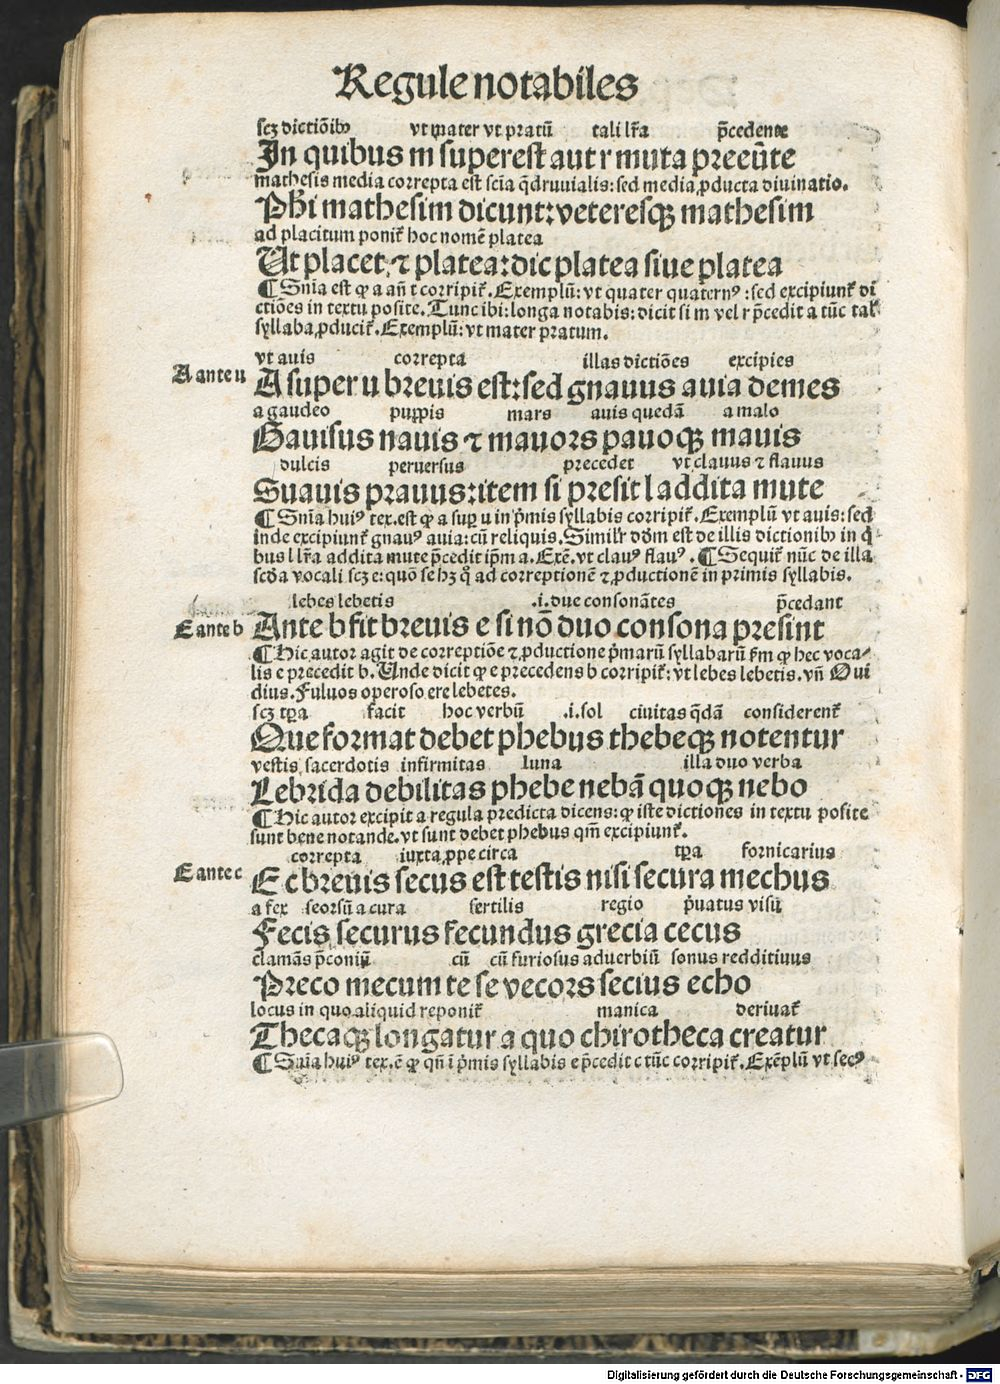 Regule notabiles
scꝫ dictiōibꝰ vt mater vt pratū tali lr̄a p̄cedente
In quibus m superest aut r muta preeūte
mathesis media correpta est scīa q̄druuialis: sed media ꝓducta diuinatio.
Phi mathesim dicunt: veteresqꝫ mathesim
ad placitum ponit᷑ hoc nomē platea
Ut placet, ⁊ platea: dic platea siue platea
¶ Snīa est ꝙ a an̄ t corripit᷑. Exemplū: vt quater quaternꝰ: sed excipiunt᷑ di
ctiōes in textu posite. Tunc ibi: longa notabis: dicit si m vel r p̄cedit a tūc tal᷑
syllaba ꝓducit᷑. Exemplū: vt mater pratum.
vt auis correpta illas dictiōes excipies
A ante u A super u breuis est: sed gnauus auia demes
a gaudeo puppis mars auis quedā a malo
Gauisus nauis ⁊ mauors pauoqꝫ mauis
dulcis peruersus precedet vt clauus ⁊ flauus
Suauis prauus: item si presit l addita mute
¶ Snīa huiꝰ tex. est ꝙ a suꝑ u in p̄mis syllabis corripit᷑. Exemplū vt auis: sed
inde excipiunt᷑ gnauꝰ auia: cū reliquis. Similr̄ dōm est de illis dictionibꝰ in q̄
bus l lr̄a addita mute p̄cedit ip̄m a. Exē. vt clauꝰ flauꝰ. ¶ Sequit᷑ nūc de illa
scd̄a vocali scꝫ e: quō se hꝫ q̊ ad correptionē ⁊ ꝓductionē in primis syllabis.
lebes lebetis .i. due consonātes p̄cedant
E ante b Ante b fit breuis e si nō duo consona presint
¶ Hic autor agit de correptiōe ⁊ ꝓductione p̄marū syllabarū ẜm ꝙ hec voca-
lis e precedit b. Unde dicit ꝙ e precedens b corripit᷑: vt lebes lebetis. vn̄ Oui
dius. Fuluos operoso ere lebetes.
scꝫ tp̄a facit hoc verbū .i. sol ciuitas q̄dā considerent᷑
Que format debet phebus thebeqꝫ notentur
vestis sacerdotis infirmitas luna illa duo verba
Lebrida debilitas phebe nebā quoqꝫ nebo
¶ Hic autor excipit a regula predicta dicens: ꝙ iste dictiones in textu posite
sunt bene notande. vt sunt debet phebus qm̄ excipiunt᷑.
correpta iuxta ꝓpe circa tp̄a fornicarius
E ante c E c breuis secus est testis nisi secura mechus
a fex seorsū a cura fertilis regio p̄uatus visū
Fecis securus fecundus grecia cecus
clamās p̄coniū cū cū furiosus aduerbiū sonus redditiuus
Preco mecum te se vecors secius echo
locus in quo aliquid reponit᷑ manica deriuat᷑
Thecaqꝫ longatur a quo chirotheca creatur
¶ Snīa huiꝰ tex. ē ꝙ qn̄ ī p̄mis syllabis e p̄cedit c tūc corripit᷑. Exēplū vt secꝰ
Digitalisierung gefördert durch die Deutsche Forschungsgemeinschaft - DFG